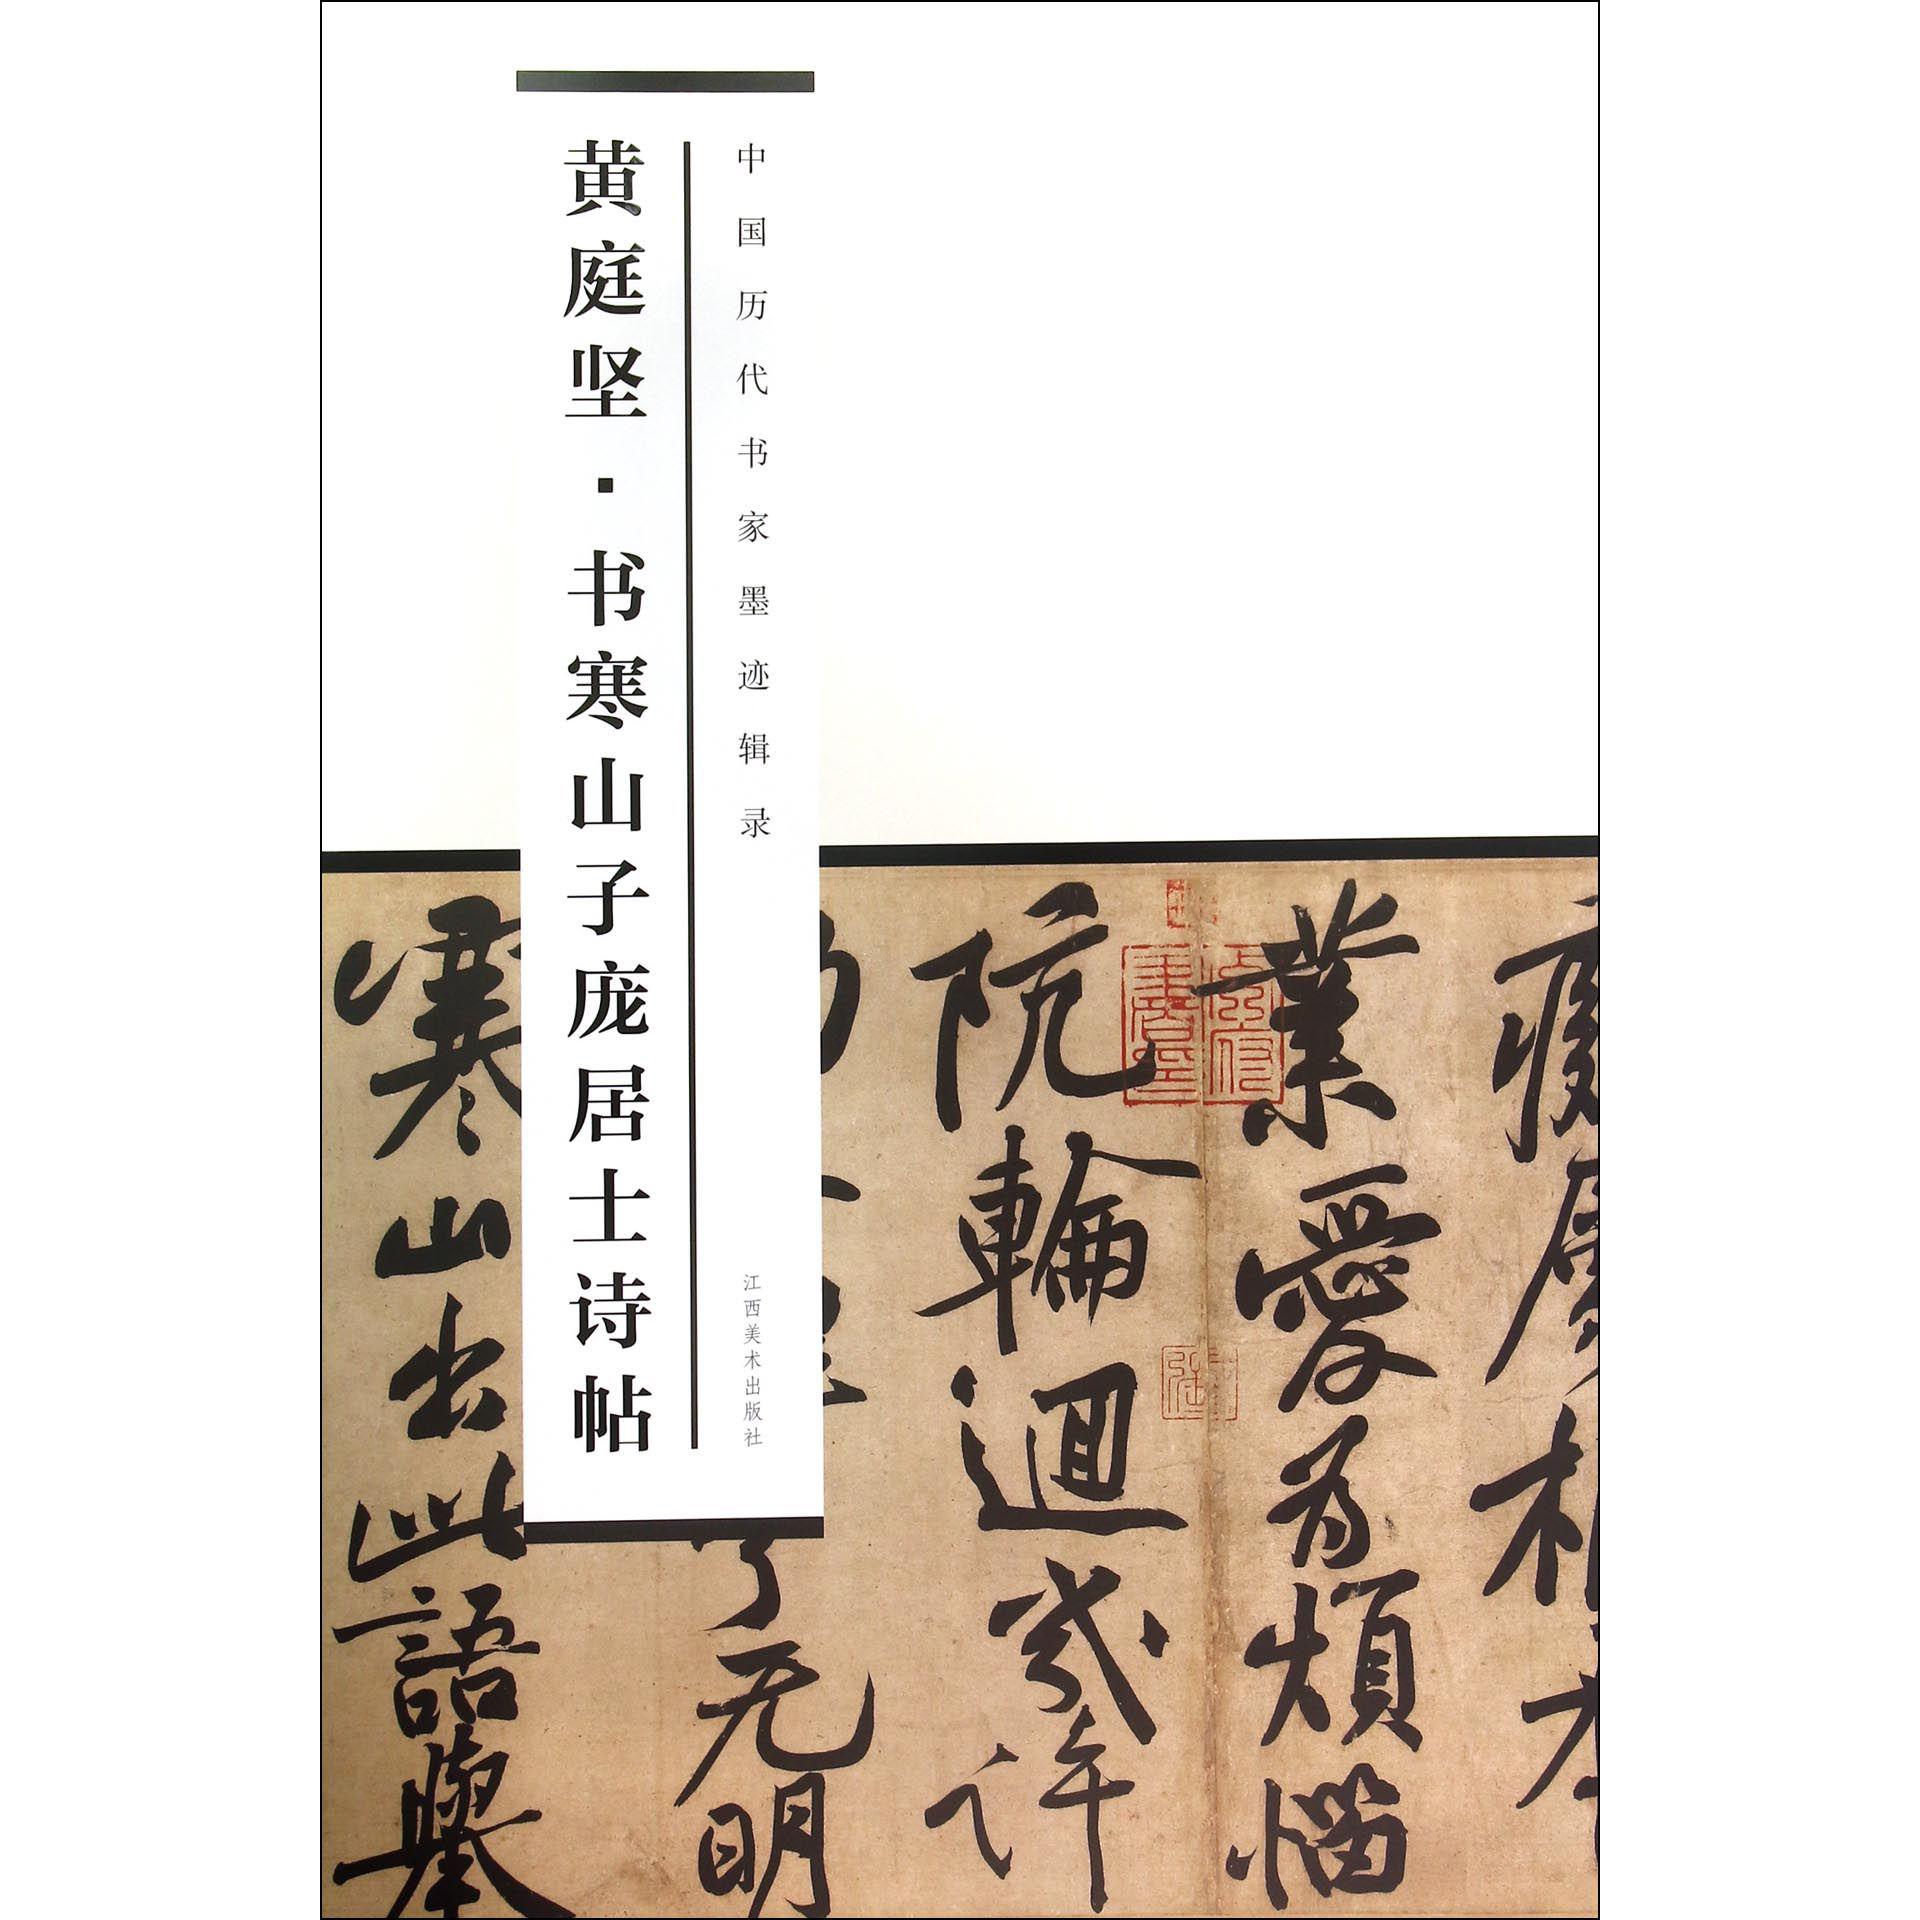 中国历代书家墨迹辑录
江西美术出版社
黄庭坚·书寒山子庞居士诗帖
業愛為煩惱
阬輪迴幾許
了无明
寒山出此語舉